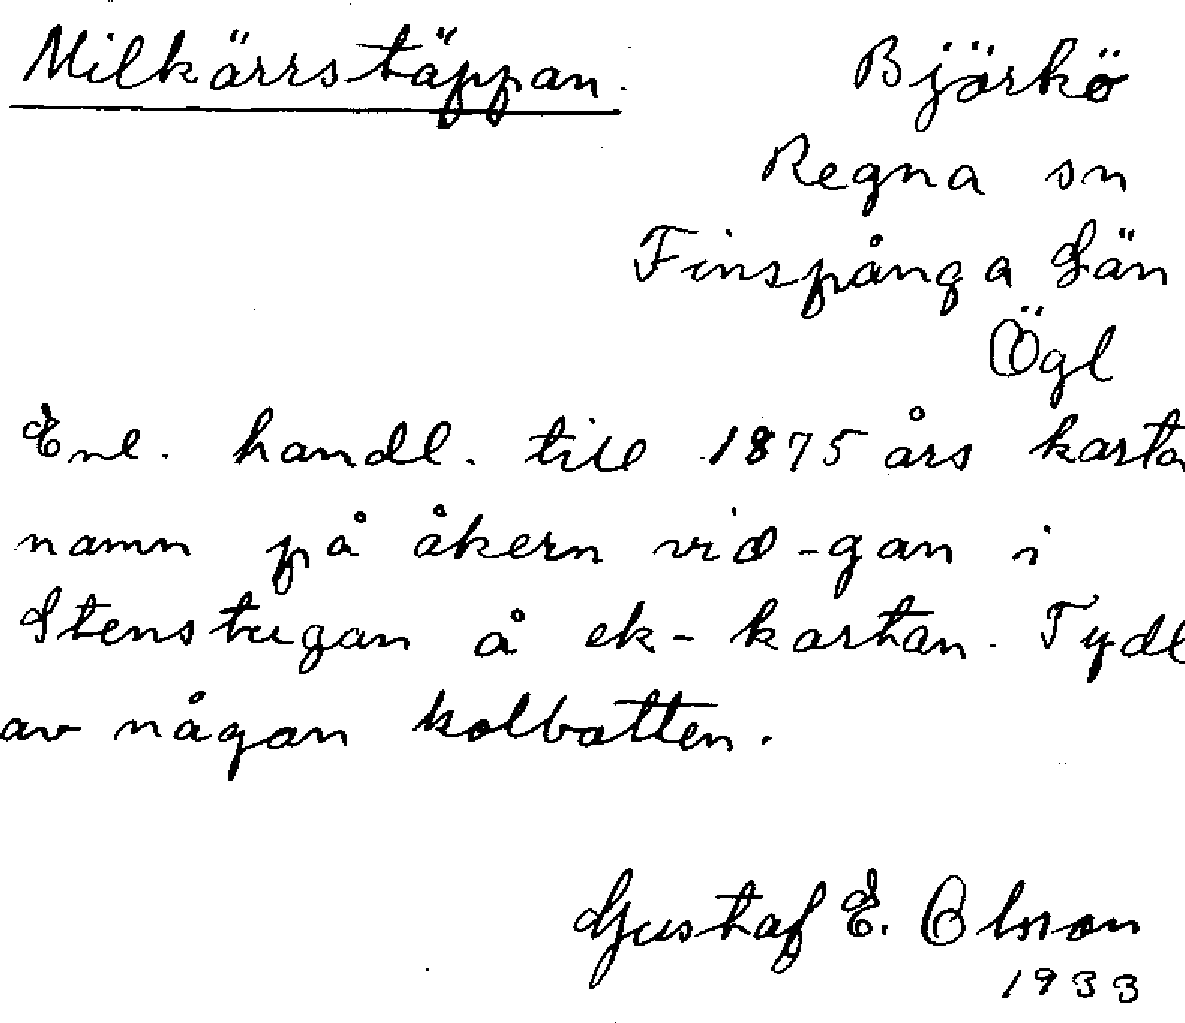 Milkärrstäppan. Björkö
Regna sn
Finspånga Län
Ögl
Enl. handl. till 1875 års karta
namn på åkern vid -gan i
Stenstugan å ek-kartan. Tydl
av någan kolbotten.
Gustaf E. Olsson
1933